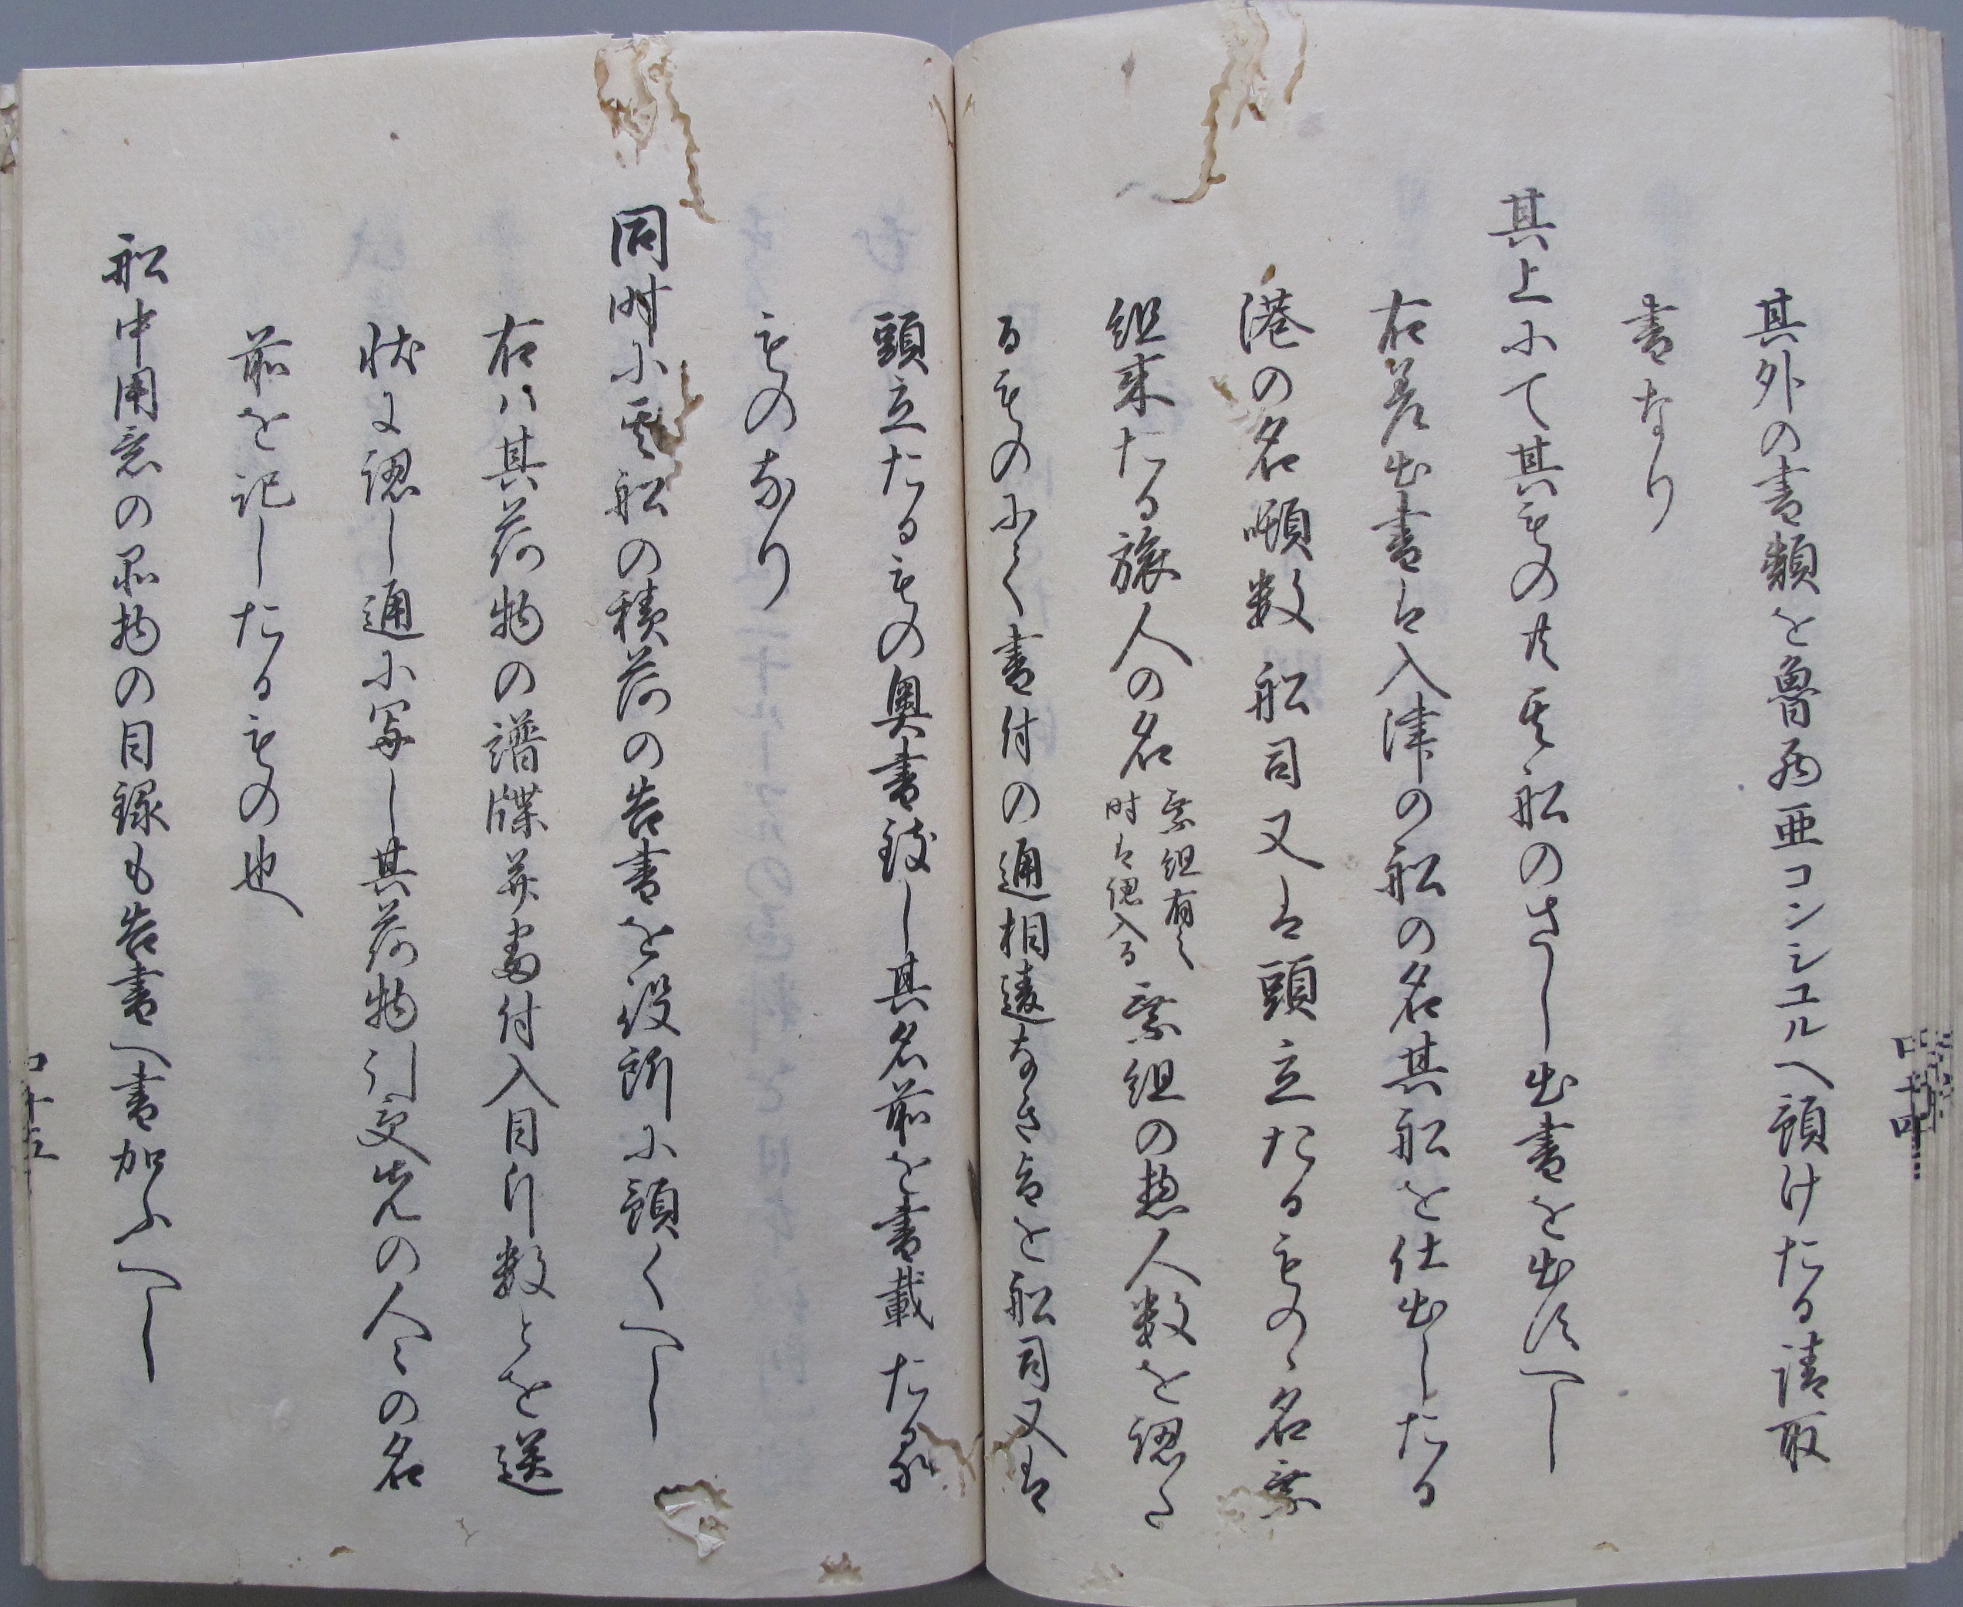 其外の書類を魯西亜コンシユルへ預けたる請取
書なり
其上にて其もの共其船のさし出書を出すへし
右差出書は入津の船の名其船を仕出したる
港の名噸数船司又は頭立たるものゝ名乗
組来たる旅人の名
乗組有之
時は認入る
乗組の惣人数を認た
るものにて書付の通相違なき旨を船司又は
頭立たるもの奥書致し其名前を書載たる
ものなり
同時に其船の積荷の告書を役所に預くへし
右ハ其荷物の譜牒并番付入目斤数とを送
状に認し通に写し其荷物引受先の人々の名
前を記したるもの也
船中用意の品物の目録も告書へ書加ふへし
四十五